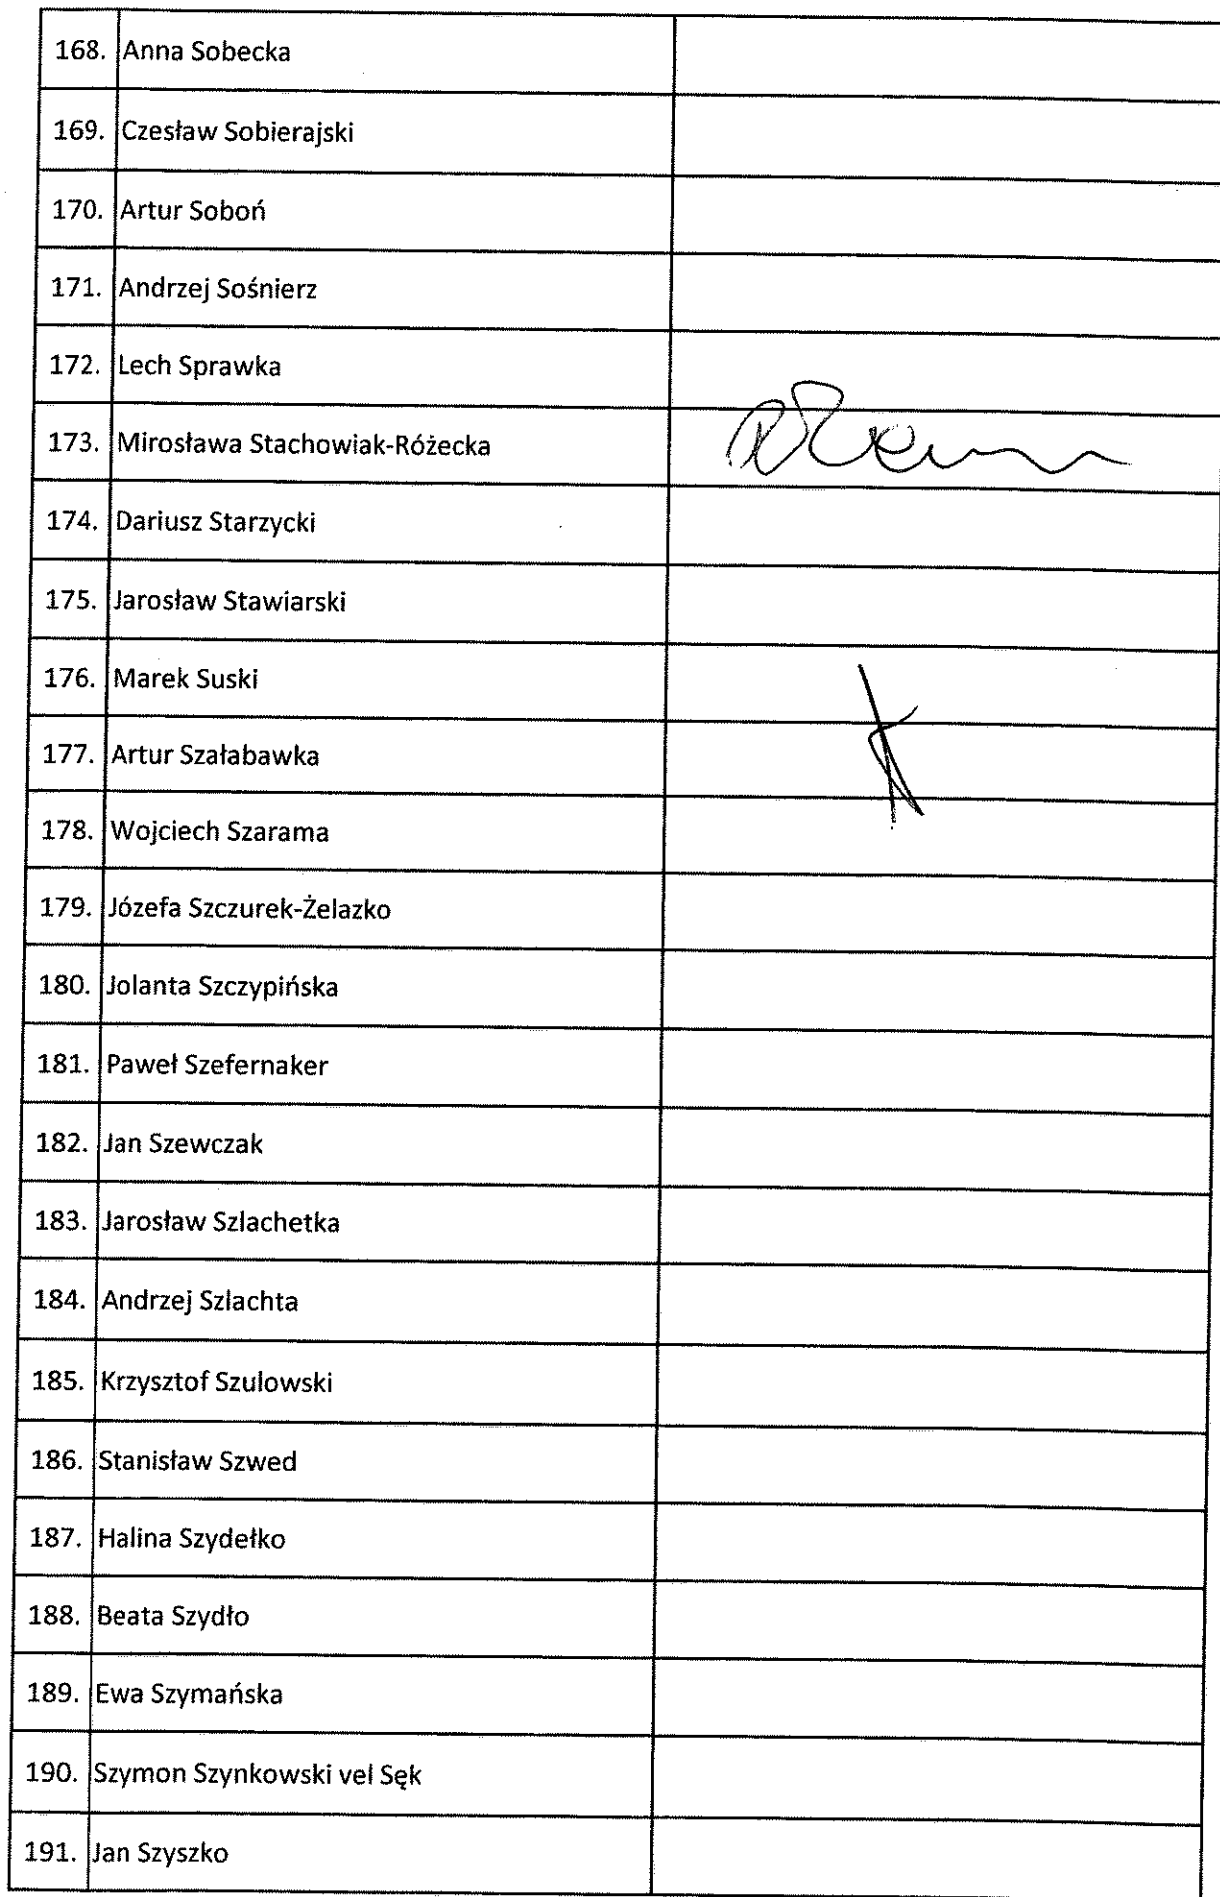 168. Anna Sobecka
169. Czesław Sobierajski
170. Artur Soboń
171. Andrzej Sośnierz
172. Lech Sprawka
173. Mirosława Stachowiak-Różecka
174. Dariusz Starzycki
175. Jarosław Stawiarski
176. Marek Suski
177. Artur Szałabawka
178. Wojciech Szarama
179. Józefa Szczurek-Żelazko
180. Jolanta Szczypińska
181. Paweł Szefernaker
182. Jan Szewczak
183. Jarosław Szlachetka
184. Andrzej Szlachta
185. Krzysztof Szulowski
186. Stanisław Szwed
187. Halina Szydełko
188. Beata Szydło
189. Ewa Szymańska
190. Szymon Szynkowski vel Sęk
191. Jan Szyszko